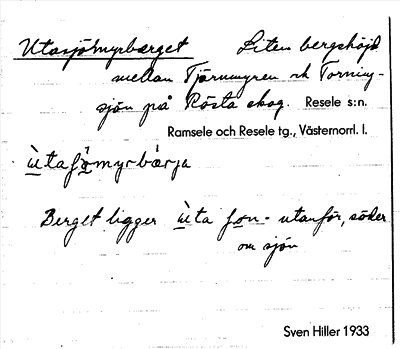 Utasjömyrberget Liten bergshöjd
mellan Tjärnmyren och Torning-
sjön på Rösta skog. Resele s:n.
Ramsele och Resele tg., Västernorrl. l.
Berget ligger ùta - utanför, söder
om sjön
Sven Hiller 1933